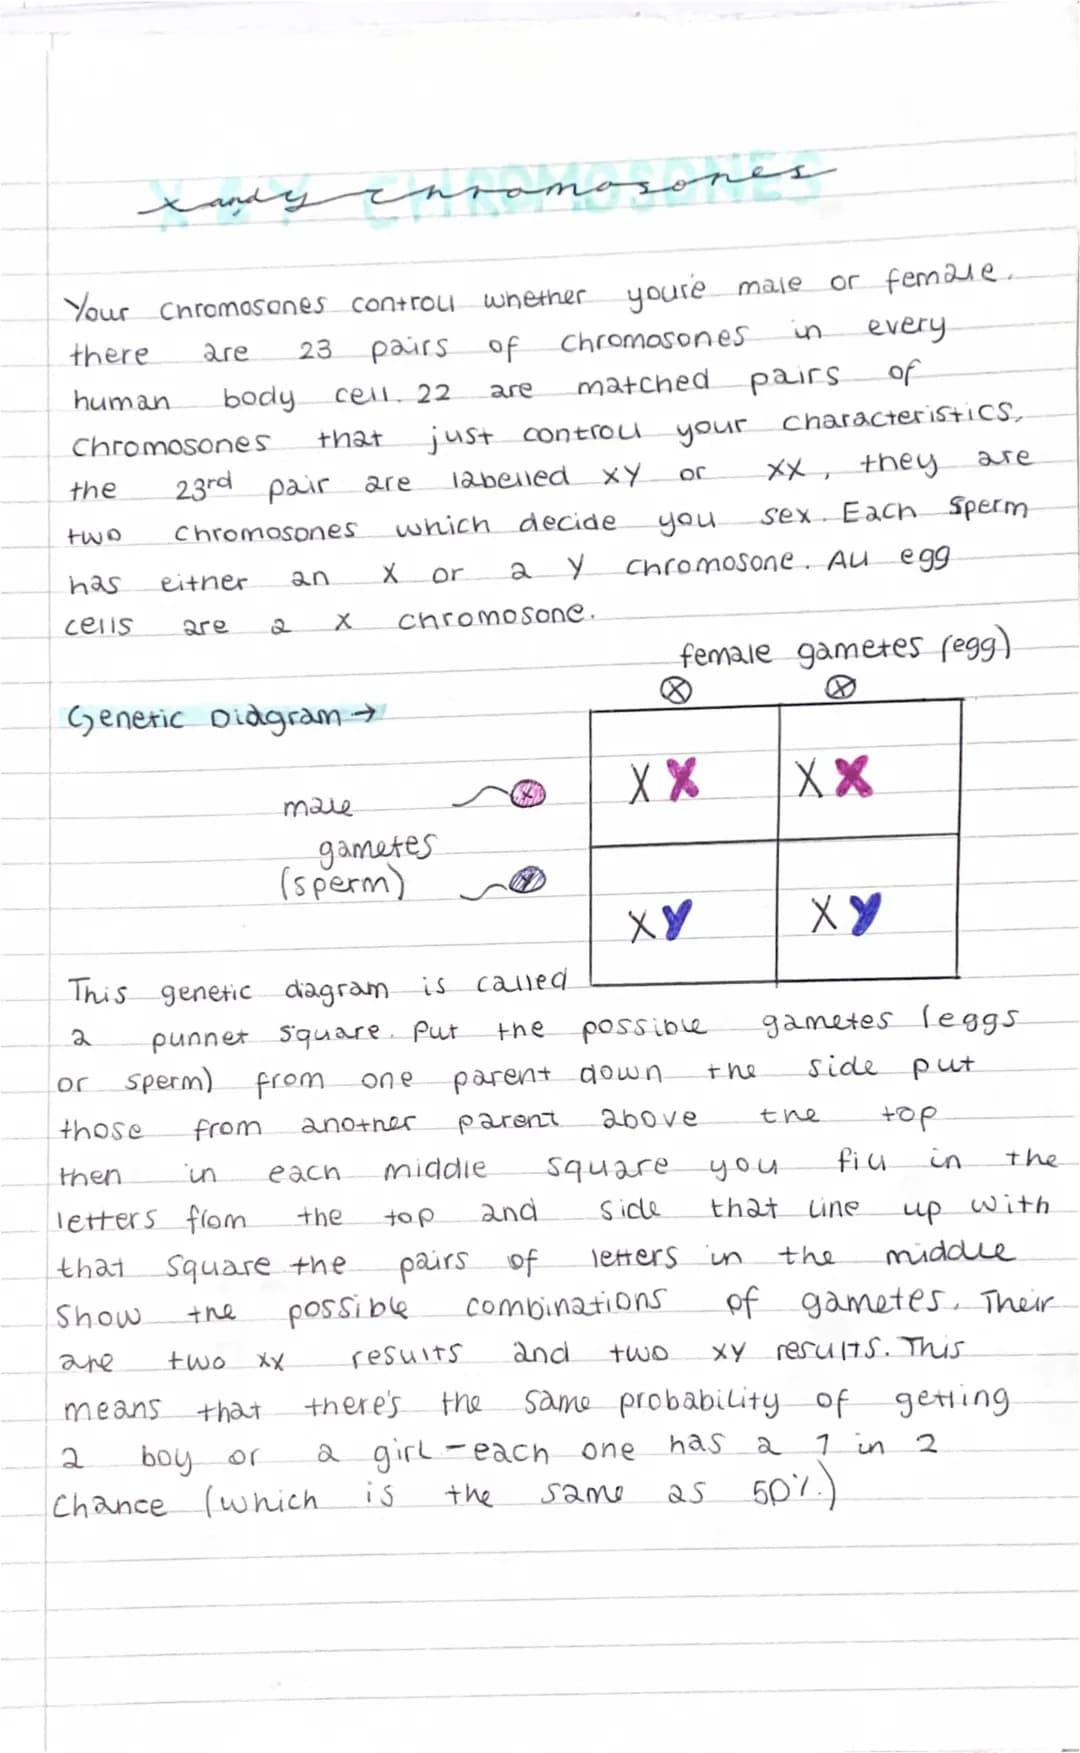 X & Y CHROMOSONES
x and y chromosones
Your chromosones controll whether you're male or female.
there are 23 pairs of chromosones in every
human body cell. 22 are matched pairs of
chromosones that just controll your characteristics,
the 23rd pair are labelled xy or xx, they are
two chromosones which decide you sex. Each sperm
has either an X or a Y chromosone. All egg
cells are a X chromosone.
female gametes (egg)
X X
Genetic Diagram →
male X X X X X
gametes
(sperm) Y X Y X Y
This genetic diagram is called
a punnet square. Put the possible gametes (eggs
or sperm) from one parent down the side put
those from another parent above the top
then in each middle square you fill in the
letters from the top and side that line up with
that square the pairs of letters in the middle
show the possible combinations of gametes. Their
are two xx results and two xy results. This
means that there's the same probability of getting
a boy or a girl - each one has a 1 in 2
chance (which is the same as 50%.)